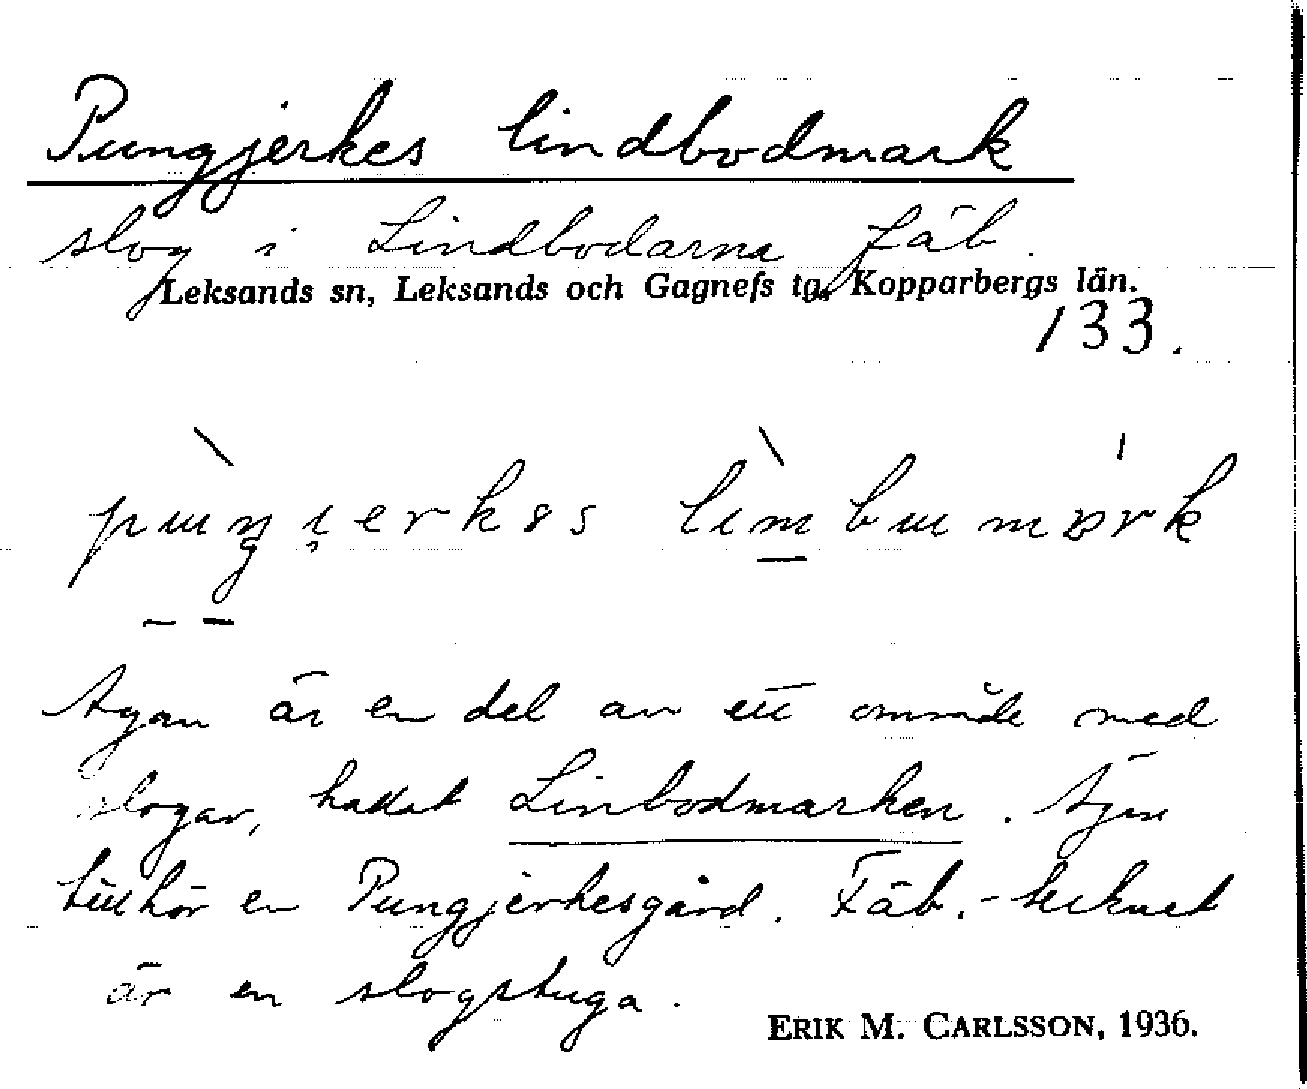 Pungjerkes lindbodmark
slog i Lindbodarna fäb.
Leksands sn, Leksands och Gagnefs tg, Kopparbergs län.
133.
Ägan är en del av ett område med
slogar, kallat Linbodmarken. Ägan
tillhör en Pungjerkesgård. Fäb.-tecknet
är en slogstuga.
ERIK M. CARLSSON, 1936.